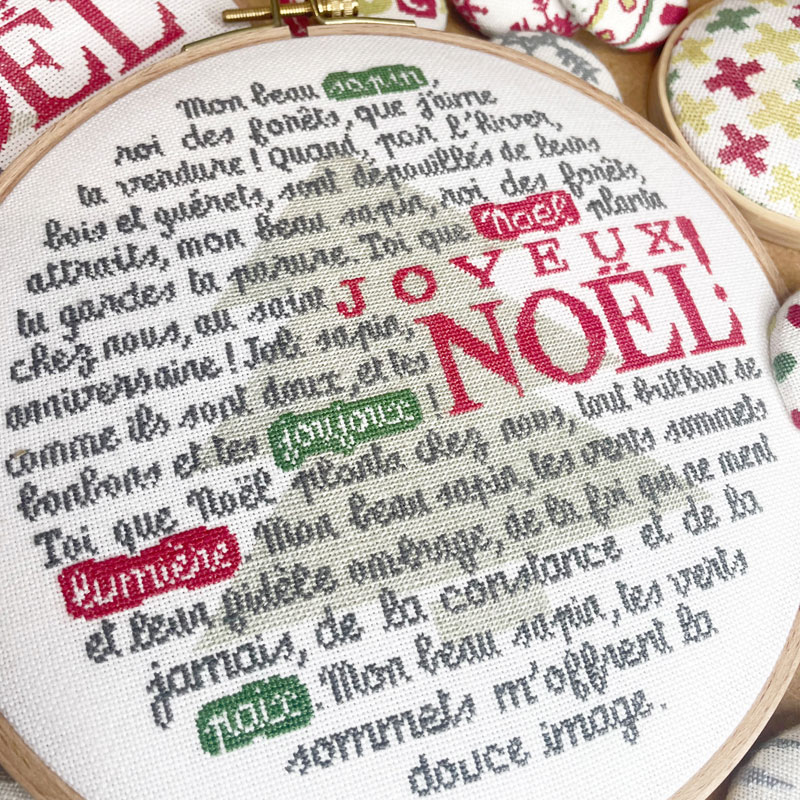 ËL
Mon beau sapin,
roi des forêts, que j'aime
ta verdure ! Quand, par l'hiver,
bois et guérets, sont dépouillés de leurs
attraits, mon beau sapin, roi des forêts,
tu gardes ta parure. Toi que Noël planta
chez nous, au saint
anniversaire ! Joli sapin,
JOYEUX
NOËL!
comme ils sont doux, et les
bonbons et les joujoux !
Toi que Noël planta chez nous, tout brillant de
lumière. Mon beau sapin, tes verts sommets
et leur fidèle ombrage, de la foi qui ne ment
jamais, de la constance et de la
paix. Mon beau sapin, tes verts
sommets m'offrent la
douce image.